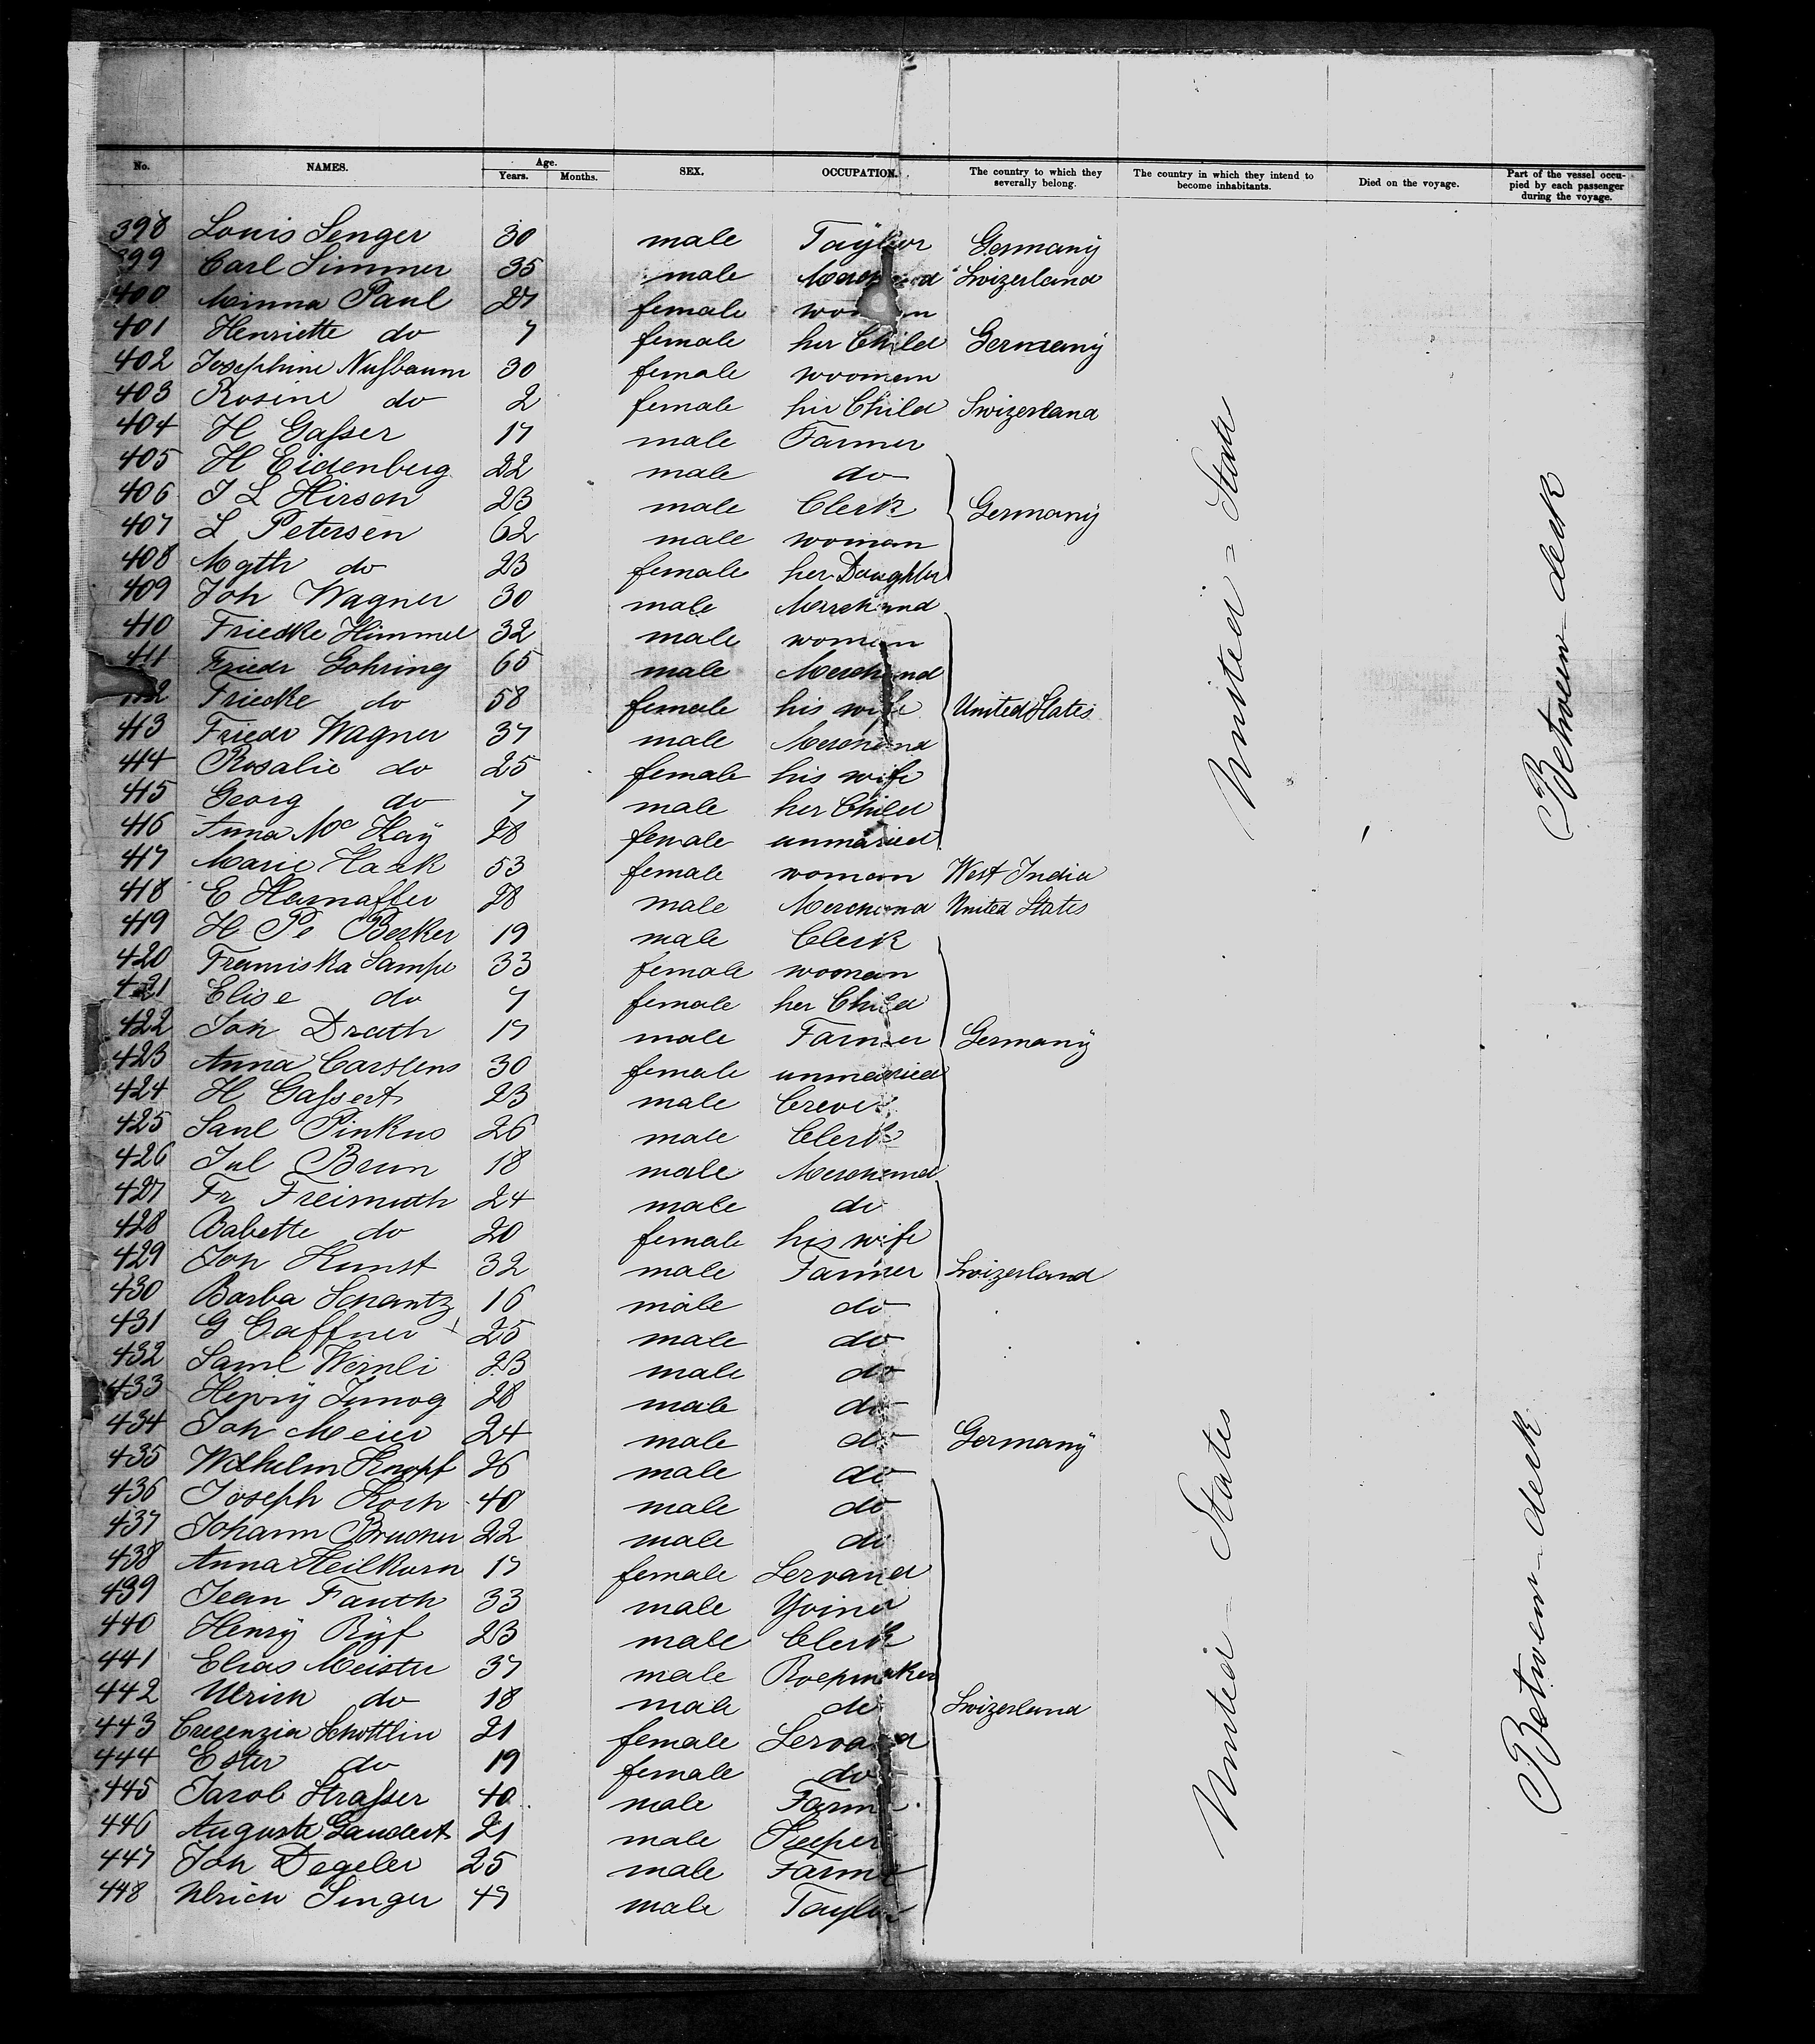 No. NAMES. Age. Years. Months. SEX. OCCUPATION. The country to which they severally belong. The country in which they intend to become inhabitants. Died on the voyage. Part of the vessel occupied by each passenger during the voyage.
398 Louis Senger 30 male Taylor Germany
399 Carl Simmer 35 male Swizerland
400 Minna Paul 27 female
401 Henriette do 7 female her Child Germany
402 Josephine Nußbaum 30 female woomen
403 Rosine do 2 female hir Child Swizerland
404 H Gaßser 17 male Farmer
405 H Eidenberg 22 male do
406 J L Hirsch 23 male Clerk Germany
407 L Petersen 62 male woman
408 Mgth do 23 female her Daughter
409 Joh Wagner 30 male Merchand
410 Friedke Himmel 32 male woman
411 Friedr Gohring 65 male Merchand
Friedke do 58 female his wife United States
413 Friedr Wagner 37 male Merchand
414 Rosalie do 25 female his wife
415 Georg do 7 male her Child
416 Anna Mc Kay 28 female unmaried
417 Marie Haak 53 female woman West India
418 E 28 male Merchand United States
419 H Pe Becker 19 male Clerk
420 Franziska Sampe 33 female wooman
421 Elise do 7 female her Child
422 Joh Drath 17 male Farmer Germany
423 Anna Carstens 30 female unmarried
424 H Gaßert 23 male
425 Saul Pinkus 26 male Clerk
426 Jul Brun 18 male Merchand
427 Fr Freimuth 24 male do
428 Babette do 20 female his wife
429 Joh Kunst 32 male Farmer Swizerland
430 Barba Schantz 16 male do
431 G Gaffner 25 male do
432 Saml Wernli 23 male do
433 Henry 28 male do
434 Joh Meier 24 male do Germany
435 Wilhelm Knopf 26 male do
436 Joseph Koch 40 male do
437 Johann Brucker 22 male do
438 Anna Heilkorn 17 female Servand
439 Jean Fauth 33 male
440 Henry Ryf 23 male Clerk
441 Elias Meister 37 male Roepmaker
442 Ulrich do 18 male do Swizerland
443 Cresenzia Schottlin 21 female Servand
444 Ester do 19 female do
445 Jacob Straßser 40 male Farmer
446 Auguste Gaudert 21 male
447 Joh Degeler 25 male Farmer
448 Ulrich Singer 47 male Taylor
United = State
Betwen-deck
United - States
Betwen-deck